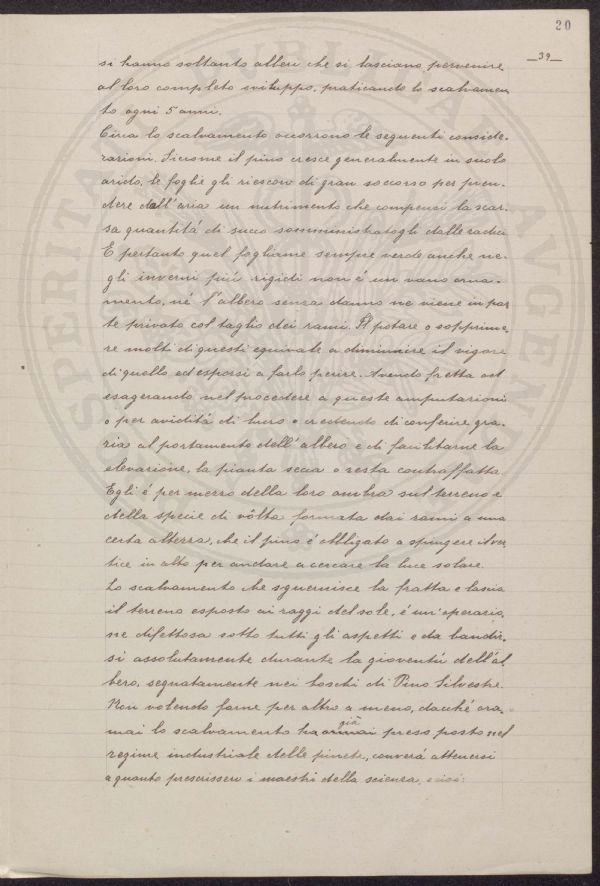 20
39
si hanno soltanto alberi che si lasciano pervenire
al loro completo sviluppo, praticando lo scalvamen
to ogni 5 anni.
Circa lo scalvamento occorrono le seguenti conside-
razioni. Siccome il pino cresce generalmente in suolo
arido, le foglie gli riescono di gran soccorso per pren-
dere dall'aria un nutrimento che compensi la scar-
sa quantitá di succo somministratogli dalle radici
E pertanto quel fogliame sempre verde anche ne-
gli inverni piú rigidi non é un vano orna-
mento, né l'albero senza danno ne viene in par
te privato col taglio dei rami. Il potare o sopprime-
re molti di questi equivale a diminuire il vigore
di quello ed esporsi a farlo perire. Avendo fretta od
esagerando nel procedere a queste amputazioni
o per aviditá di lucro o credendo di conferire gra-
zia al portamento dell'albero e di facilitarne la
elevazione, la pianta secca o resta contraffatta
Egli é per mezzo della loro ombra sul terreno e
della specie di vôlta formata dai rami a una
certa altezza, che il pino é obbligato a spingere il ver
tice in alto per andare a cercare la luce solare.
Lo scalvamento che sguernisce la fratta e lascia
il terreno esposto ai raggi del sole, é un'operazio
ne difettosa sotto tutti gli aspetti e da bandir-
si assolutamente durante la gioventú dell'al
bero, segnatamente nei boschi di Pino Silvestre.
Non volendo farne per altro a meno, dacché ora-
mai lo scalvamento ha ormai già preso posto nel
regime industriale delle pinete, converá attenersi
a quanto prescrissero i maestri della scienza, e cioé:
SPERITAT PVBLICAE AVGENDAE